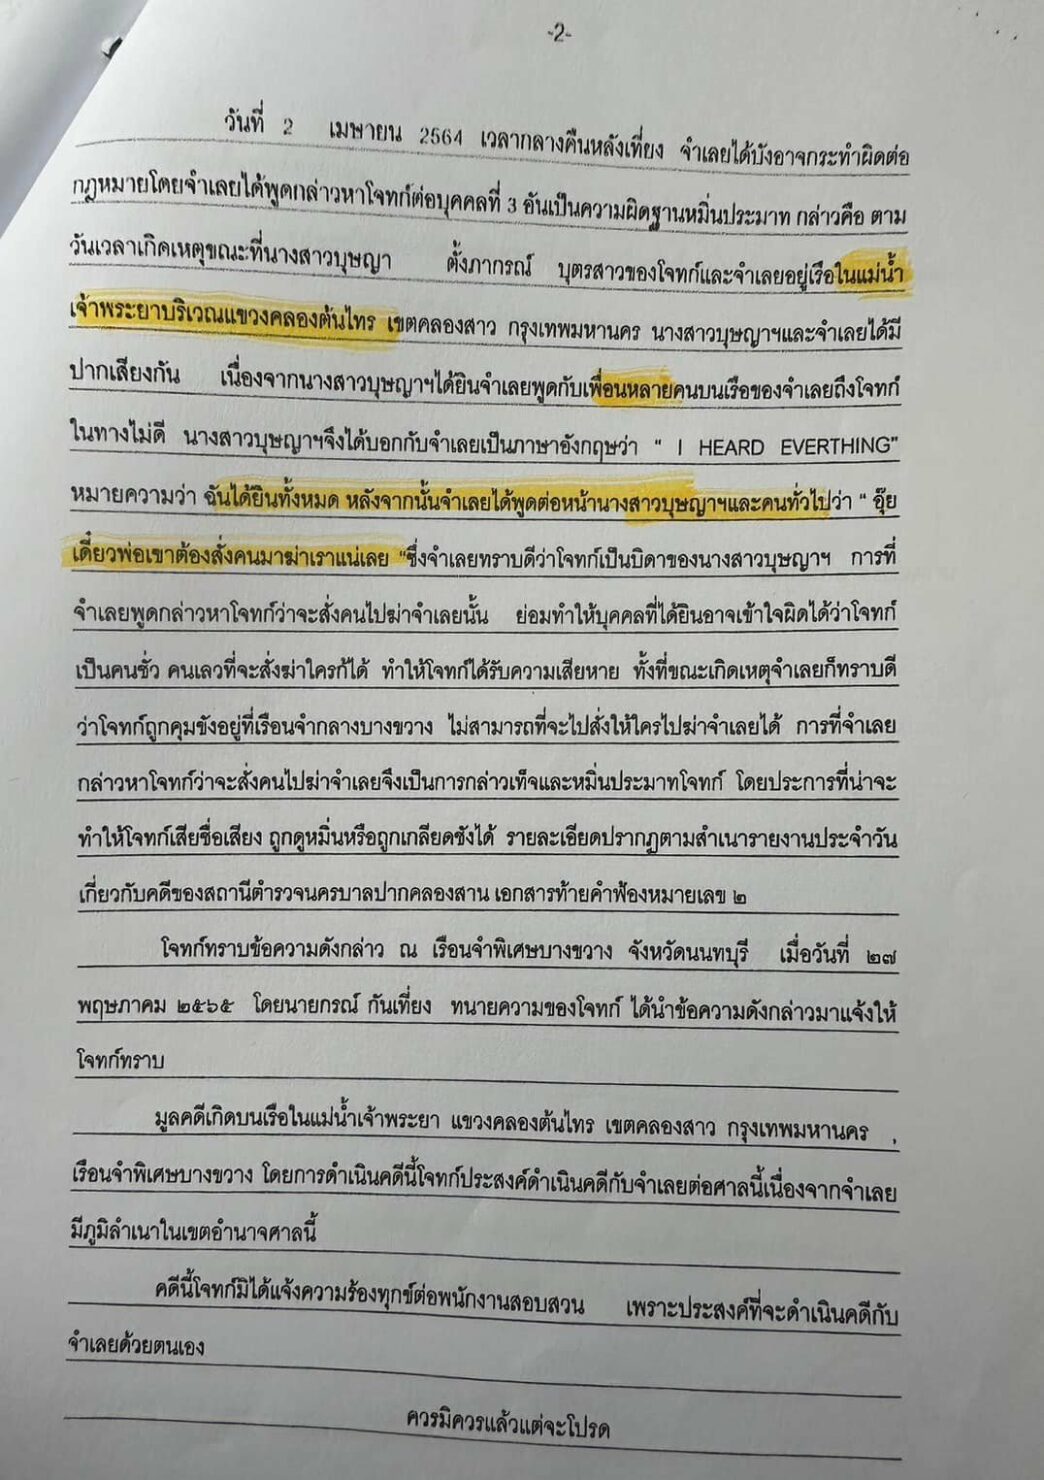 -2-
วันที่ 2 เมษายน 2564 เวลากลางคืนหลังเที่ยง จำเลยได้บังอาจกระทำผิดต่อ
กฎหมายโดยจำเลยได้พูดกล่าวหาโจทก์ต่อบุคคลที่ 3 อันเป็นความผิดฐานหมิ่นประมาท กล่าวคือ ตาม
วันเวลาเกิดเหตุขณะที่นางสาวบุษญา ตั้งภากรณ์ บุตรสาวของโจทก์และจำเลยอยู่เรือในแม่น้ำ
เจ้าพระยาบริเวณแขวงคลองต้นไทร เขตคลองสาว กรุงเทพมหานคร นางสาวบุษญาฯและจำเลยได้มี
ปากเสียงกัน เนื่องจากนางสาวบุษญาฯได้ยินจำเลยพูดกับเพื่อนหลายคนบนเรือของจำเลยถึงโจทก์
ในทางไม่ดี นางสาวบุษญาฯจึงได้บอกกับจำเลยเป็นภาษาอังกฤษว่า “ I HEARD EVERTHING”
หมายความว่า ฉันได้ยินทั้งหมด หลังจากนั้นจำเลยได้พูดต่อหน้านางสาวบุษญาฯและคนทั่วไปว่า “ อุ๊ย
เดี๋ยวพ่อเขาต้องสั่งคนมาฆ่าเราแน่เลย “ซึ่งจำเลยทราบดีว่าโจทก์เป็นบิดาของนางสาวบุษญาฯ การที่
จำเลยพูดกล่าวหาโจทก์ว่าจะสั่งคนไปฆ่าจำเลยนั้น ย่อมทำให้บุคคลที่ได้ยินอาจเข้าใจผิดได้ว่าโจทก์
เป็นคนชั่ว คนเลวที่จะสั่งฆ่าใครก้ได้ ทำให้โจทก์ได้รับความเสียหาย ทั้งที่ขณะเกิดเหตุจำเลยก็ทราบดี
ว่าโจทก์ถูกคุมขังอยู่ที่เรือนจำกลางบางขวาง ไม่สามารถที่จะไปสั่งให้ใครไปฆ่าจำเลยได้ การที่จำเลย
กล่าวหาโจทก์ว่าจะสั่งคนไปฆ่าจำเลยจึงเป็นการกล่าวเท็จและหมิ่นประมาทโจทก์ โดยประการที่น่าจะ
ทำให้โจทก์เสียชื่อเสียง ถูกดูหมิ่นหรือถูกเกลียดชังได้ รายละเอียดปรากฏตามสำเนารายงานประจำวัน
เกี่ยวกับคดีของสถานีตำรวจนครบาลปากคลองสาน เอกสารท้ายคำฟ้องหมายเลข ๒
โจทก์ทราบข้อความดังกล่าว ณ เรือนจำพิเศษบางขวาง จังหวัดนนทบุรี เมื่อวันที่ ๒๗
พฤษภาคม ๒๕๖๕ โดยนายกรณ์ กันเที่ยง ทนายความของโจทก์ ได้นำข้อความดังกล่าวมาแจ้งให้
โจทก์ทราบ
มูลคดีเกิดบนเรือในแม่น้ำเจ้าพระยา แขวงคลองต้นไทร เขตคลองสาว กรุงเทพมหานคร ,
เรือนจำพิเศษบางขวาง โดยการดำเนินคดีนี้โจทก์ประสงค์ดำเนินคดีกับจำเลยต่อศาลนี้เนื่องจากจำเลย
มีภูมิลำเนาในเขตอำนาจศาลนี้
คดีนี้โจทก์มิได้แจ้งความร้องทุกข์ต่อพนักงานสอบสวน เพราะประสงค์ที่จะดำเนินคดีกับ
จำเลยด้วยตนเอง
ควรมิควรแล้วแต่จะโปรด